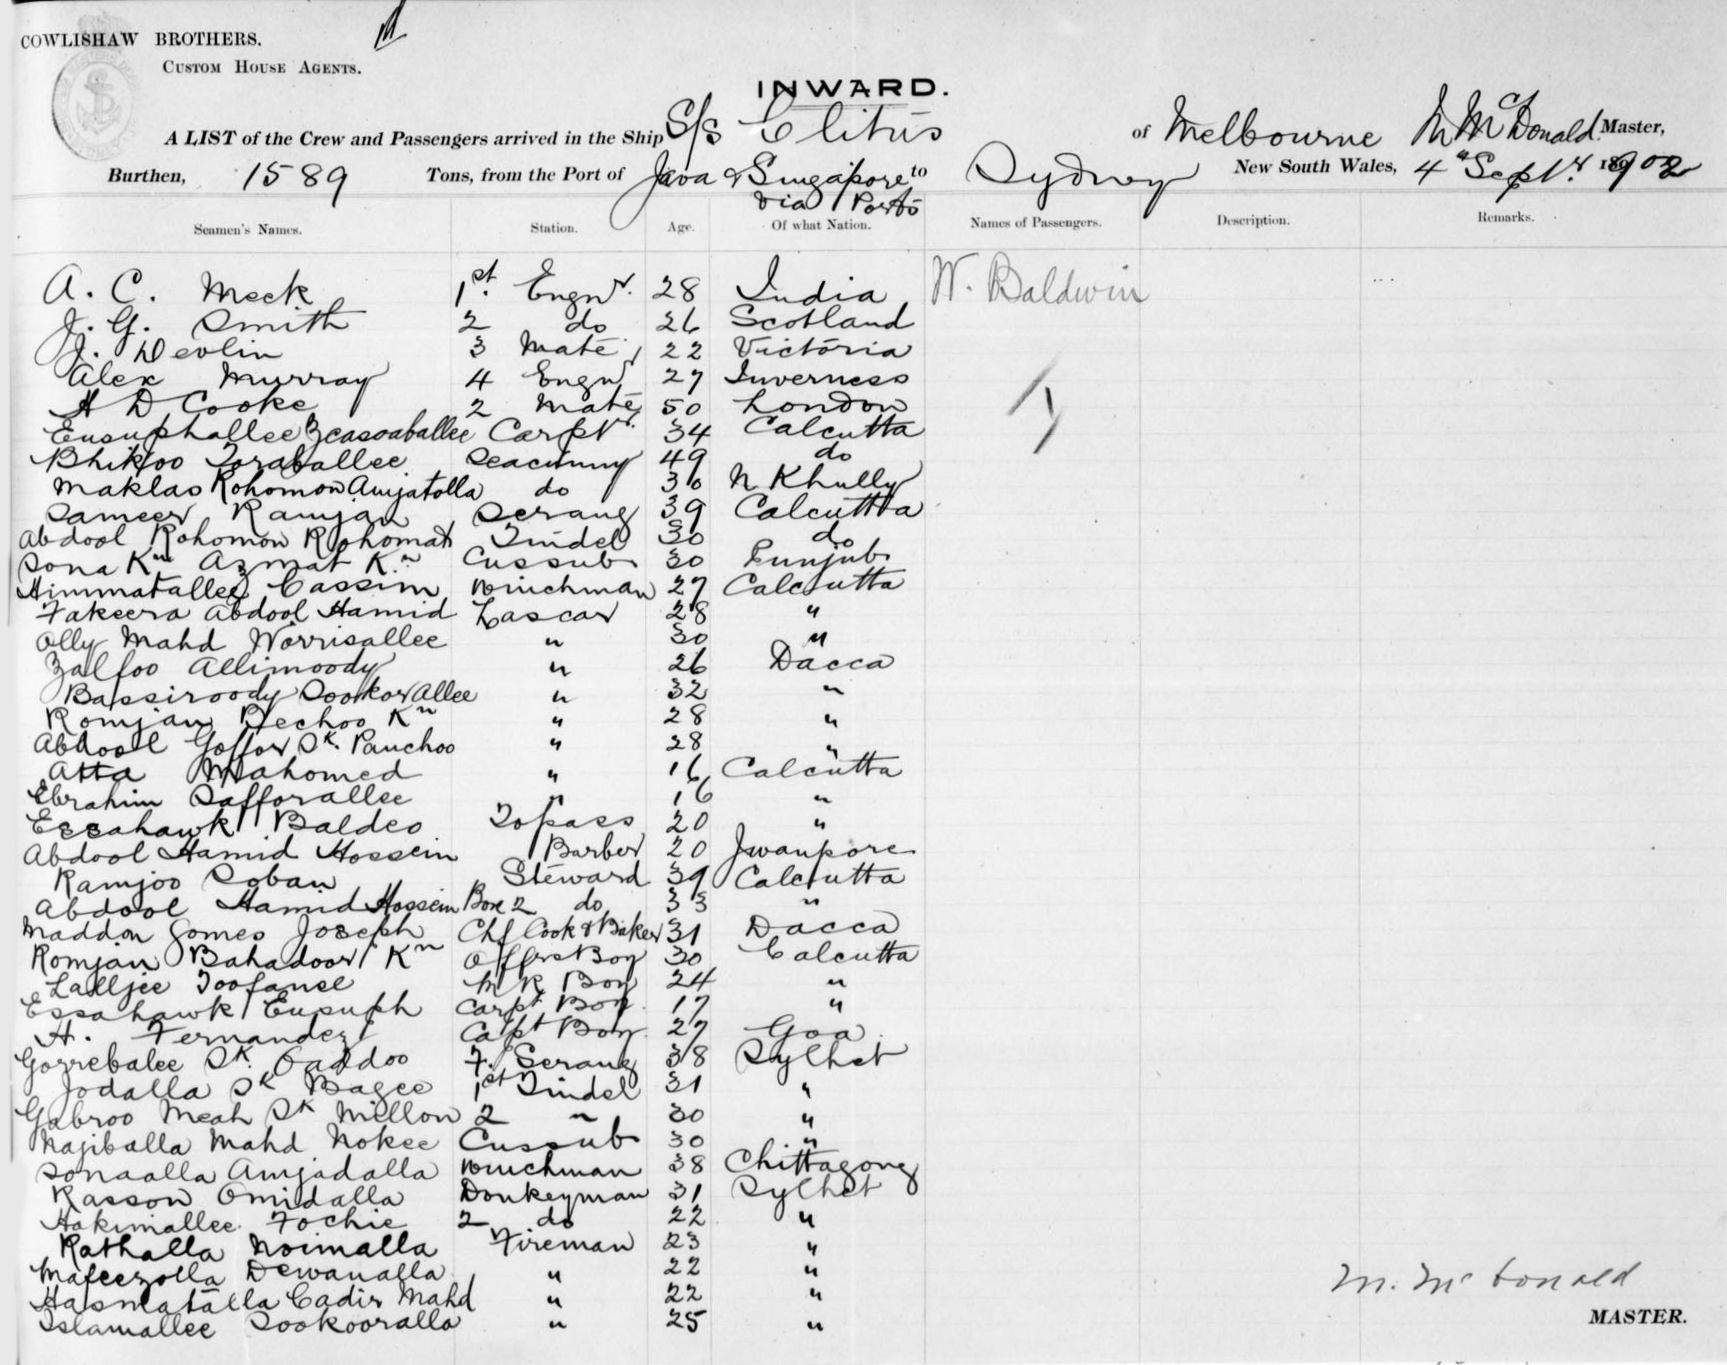 COWLISHAW BROTHERS.
CUSTOM HOUSE AGENTS.
INWARD.
A LIST of the Crew and Passengers arrived in the Ship S/s Clitus of Melbourne M McDonald Master,
Burthen, 1589 Tons, from the Port of Java & Singapore to Sydney New South Wales, 4th Septr. 1902
via Ports
Seamen's Names. Station. Age. Of what Nation. Names of Passengers. Description. Remarks.
A. C. Meek 1st. Engnr. 28 India W. Baldwin
J. G. Smith 2 do 26 Scotland
J. Devlin 3 Mate 22 Victoria
Alex Murray 4 Engnr 27 Inverness
H D Cooke 2 Mate 50 London
Eusuphallee Carptr. 34 Calcutta
Bhikjoo Toraballee Seacunny 49 do
Maklas Rohomon Amjatolla do 30 N Khully
Sameer Ramjan Serang 39 Calcutta
Abdool Rohomon Rohomat Tindel 30 do
Sona Kn Azmat Kn Cussub 30 Punjub
Himmatallee Cassim Winchman 27 Calcutta
Fakeera Abdool Hamid Lascar 28 "
Olly Mahd Worrisallee " 30 "
Zalfoo Allimoody " 26 Dacca
Bassiroody Sookor Allee " 32 "
Romjan Dechoo Kn " 28 "
Abdool Goffor Sk. Panchoo " 28 "
Atta Mahomed " 16 Calcutta
Ebrahim Safforallee " 16 "
Essahawk Baldeo Topass 20 "
Abdool Hamid Hossein Barber 20 Jwanpore
Ramjoo Soban Steward 39 Calcutta
Abdool Hamid Hossein Box 2 do 33 "
Maddon Gomes Joseph Chf Cook & Baker 31 Dacca
Romjan Bahadoor Kn Offrs Boy 30 Calcutta
Lalljee Toofanee M R Boy 24 "
Essahawk Eusuph Carpt Boy 17 "
H. Fernandez Capt Boy 27 Goa
Gorrebalee Sk. Gaddoo F. Serang 38 Sylhet
Jodalla Sk Bagee 1st Tindel 31 "
Gabroo Meah Sk Millon 2 " 30 "
Najiballa Mahd Nokee Cussub 30 "
Sonaalla Amjadalla Winchman 38 Chittagong
Rasson Omidalla Donkeyman 31 Sylhet
Hakimallee Fochie 2 do 22 "
Rathalla Noimalla Fireman 23 "
Mafeezolla Dewanalla " 22 "
Hasmatalla Cadir Mahd " 22 "
Islamallee Sookooralla " 25 "
M. McDonald
MASTER.